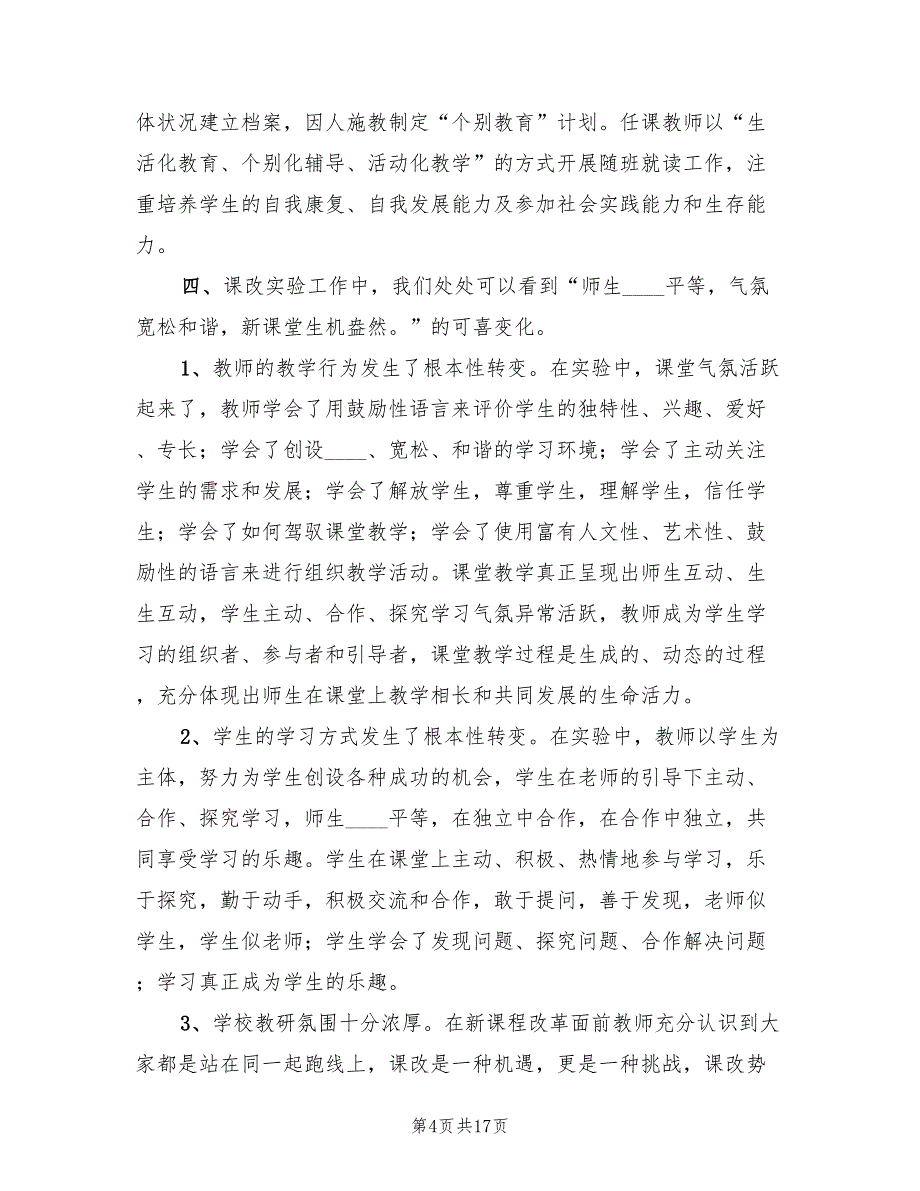 体状况建立档案，因人施教制定“个别教育”计划。任课教师以“生
活化教育、个别化辅导、活动化教学”的方式开展随班就读工作，注
重培养学生的自我康复、自我发展能力及参加社会实践能力和生存能
力。
四、课改实验工作中，我们处处可以看到“师生____平等，气氛
宽松和谐，新课堂生机盎然。”的可喜变化。
1、教师的教学行为发生了根本性转变。在实验中，课堂气氛活跃
起来了，教师学会了用鼓励性语言来评价学生的独特性、兴趣、爱好
、专长；学会了创设____、宽松、和谐的学习环境；学会了主动关注
学生的需求和发展；学会了解放学生，尊重学生，理解学生，信任学
生；学会了如何驾驭课堂教学；学会了使用富有人文性、艺术性、鼓
励性的语言来进行组织教学活动。课堂教学真正呈现出师生互动、生
生互动，学生主动、合作、探究学习气氛异常活跃，教师成为学生学
习的组织者、参与者和引导者，课堂教学过程是生成的、动态的过程
，充分体现出师生在课堂上教学相长和共同发展的生命活力。
2、学生的学习方式发生了根本性转变。在实验中，教师以学生为
主体，努力为学生创设各种成功的机会，学生在老师的引导下主动、
合作、探究学习，师生____平等，在独立中合作，在合作中独立，共
同享受学习的乐趣。学生在课堂上主动、积极、热情地参与学习，乐
于探究，勤于动手，积极交流和合作，敢于提问，善于发现，老师似
学生，学生似老师；学生学会了发现问题、探究问题、合作解决问题
；学习真正成为学生的乐趣。
3、学校教研氛围十分浓厚。在新课程改革面前教师充分认识到大
家都是站在同一起跑线上，课改是一种机遇，更是一种挑战，课改势
第4页共17页